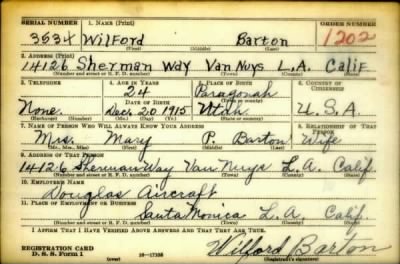 SERIAL NUMBER 1. NAME (Print) ORDER NUMBER
3534 Wilford Barton 1202
(First) (Middle) (Last)
2. ADDRESS (Print)
14126 Sherman Way Van Nuys L.A. Calif
(Number and street or R. F. D. number) (Town) (County) (State)
3. TELEPHONE 4. AGE IN YEARS 5. PLACE OF BIRTH 6. COUNTRY OF CITIZENSHIP
24 Paragonah
DATE OF BIRTH (Town or county)
None. Dec. 20 1915 Utah. U.S.A.
(Exchange) (Number) (Mo.) (Day) (Yr.) (State or country)
7. NAME OF PERSON WHO WILL ALWAYS KNOW YOUR ADDRESS 8. RELATIONSHIP OF THAT PERSON
Mrs. Mary P. Barton Wife
(Mr., Mrs., Miss) (First) (Middle) (Last)
9. ADDRESS OF THAT PERSON
14126 Sherman Way Van Nuys L.A. Calif.
(Number and street or R. F. D. number) (Town) (County) (State)
10. EMPLOYER'S NAME
Douglas Aircraft
11. PLACE OF EMPLOYMENT OR BUSINESS
Santa Monica L.A. Calif.
(Number and street or R. F. D. number) (Town) (County) (State)
I AFFIRM THAT I HAVE VERIFIED ABOVE ANSWERS AND THAT THEY ARE TRUE.
REGISTRATION CARD
D. S. S. Form 1 (over) Wilford Barton
(Registrant's signature)